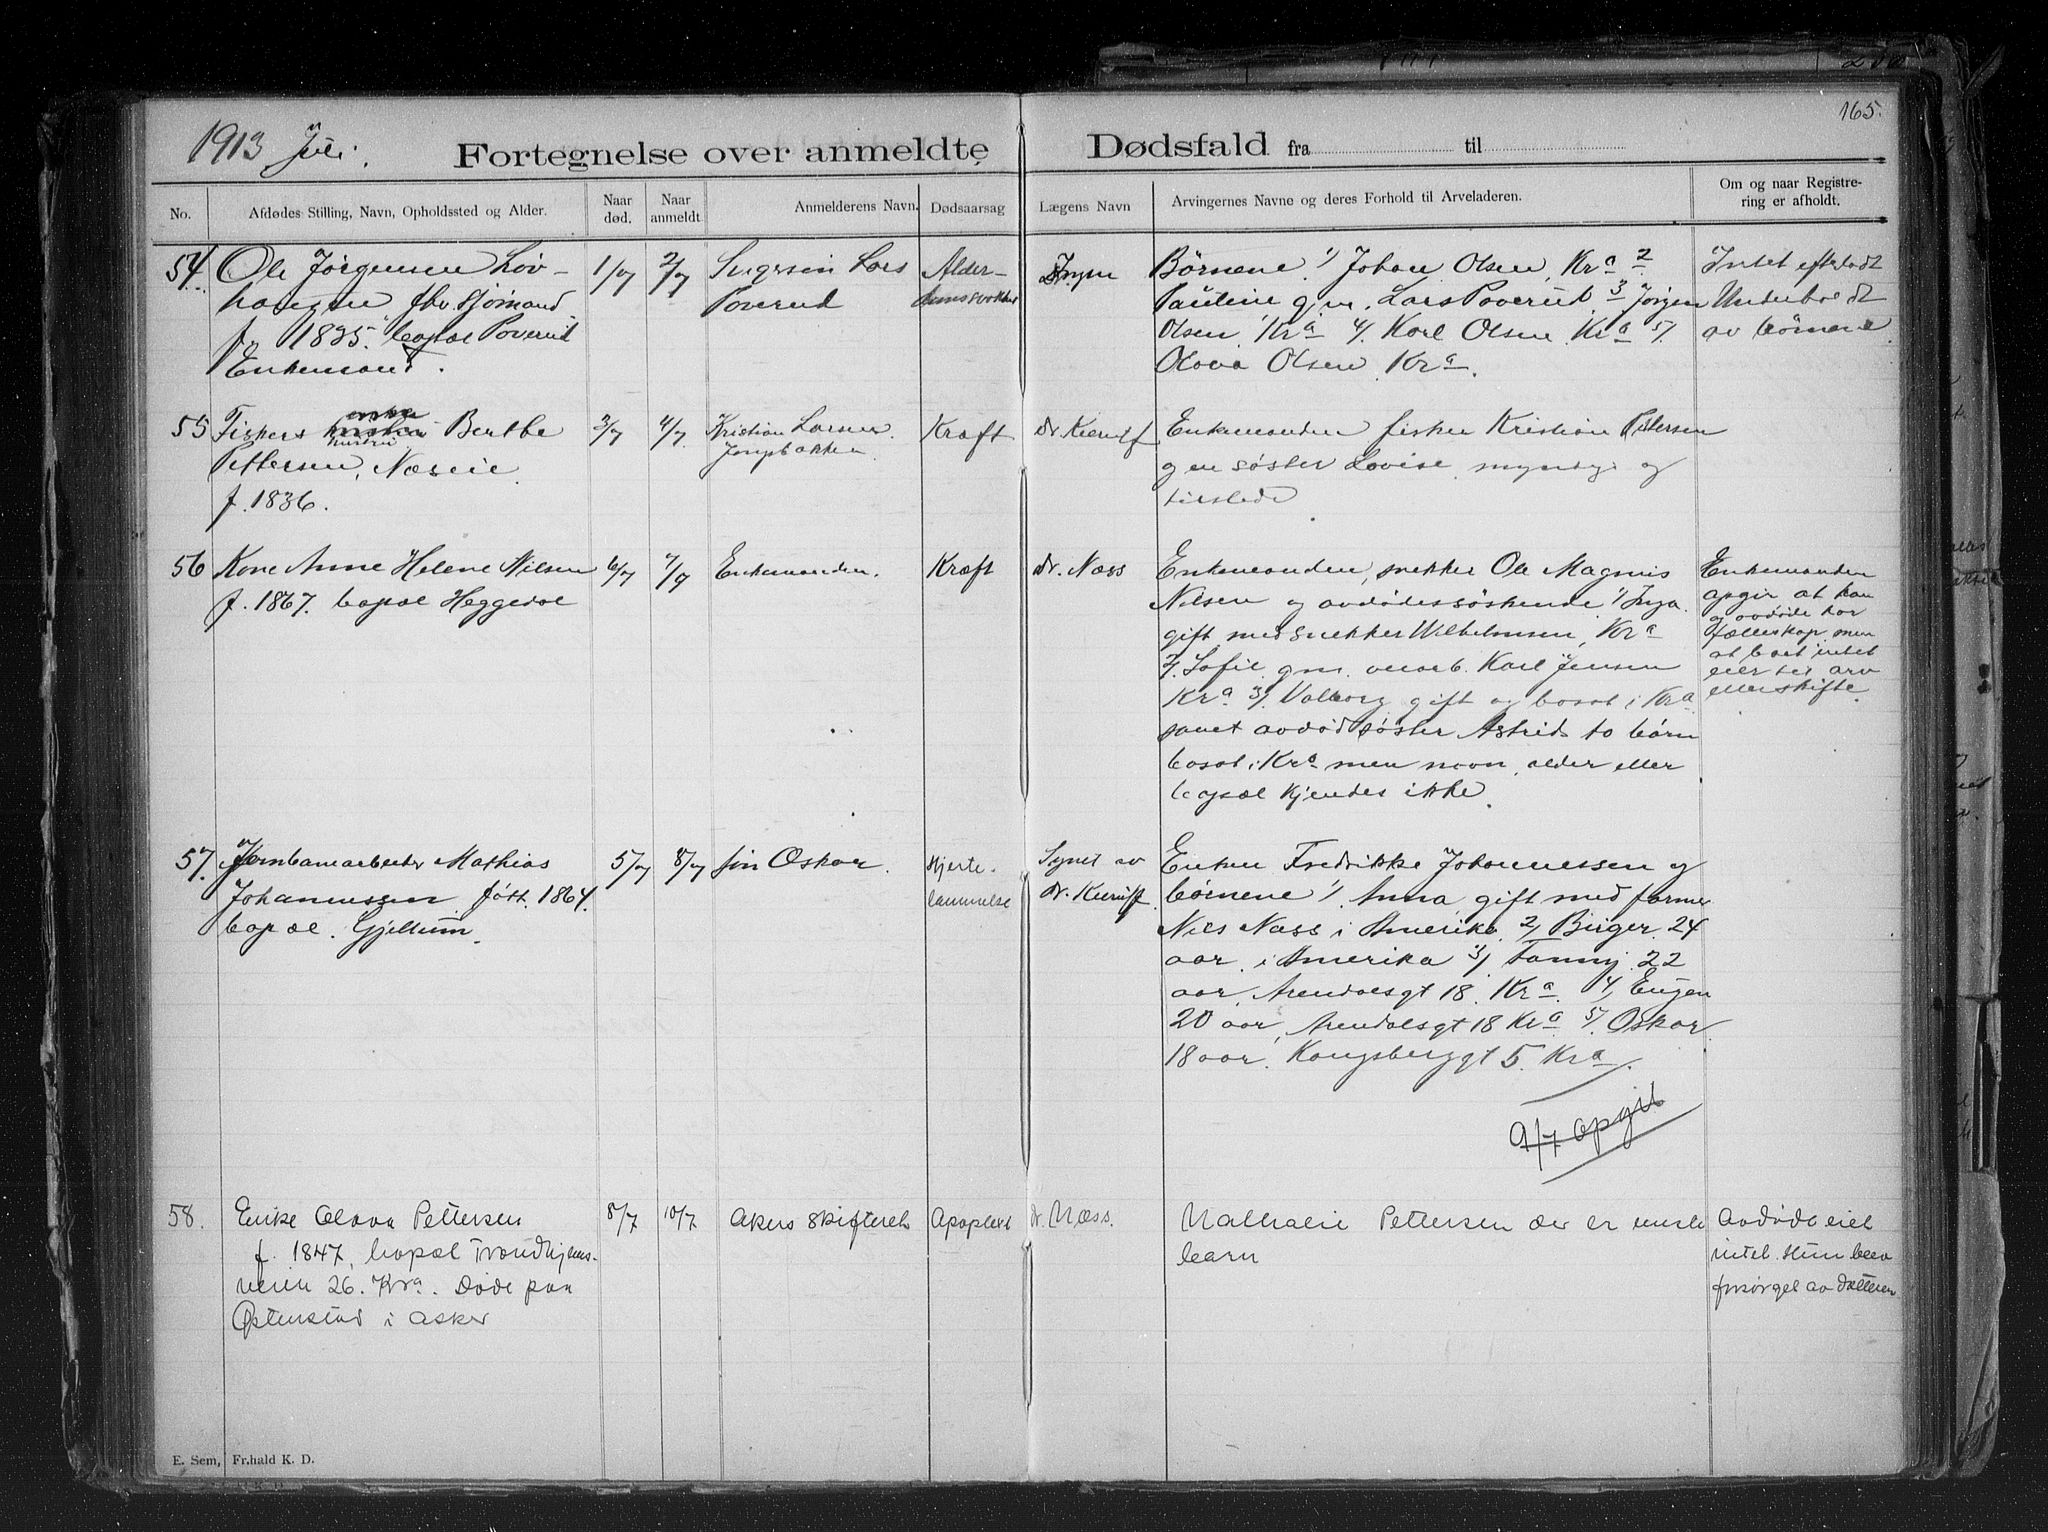 165.
1913 Juli.
Fortegnelse over anmeldte Dødsfald fra til
No.
Afdødes Stilling, Navn, Opholdssted og Alder.
Naar død.
Naar anmeldt
Anmelderens Navn.
Dødsaarsag
Lægens Navn
Arvingernes Navne og deres Forhold til Arveladeren.
Om og naar Registrering er afholdt.
54.
Ole Jørgensen Løv-
haugen fhv sjømand
f. 1835. bopæl Poverud
Enkemand.
1/7
2/7
Svigersøn Lars
Poverud
Alder-
domssvakhet
Ingen
Børnene 1/ Johan Olsen, Kra 2
Pauline g.m. Lars Poverud 3 Jørgen
Olsen, Kra 4/. Karl Olsen Kra 5/.
Olava Olsen Kra.
Intet efterladt
Underholdt
av børnene
55
Fiskers hustru Berthe
Pettersen, Næsøie
f. 1836.
2/7
4/7
Kristian Larsen
Kræft
Dr. Kierulf
Enkemanden fisker Kristian Pettersen
og en søster Lovise, myndig og
tilstede
56
Kone Anne Helene Nilsen
f. 1867. bopæl Heggedal
6/7
7/7
Enkemanden.
Kræft
Dr. Næss
Enkemanden, snekker Ole Magnus
Nilsen og avdødes søskende 1/ Inga
gift med snekker Wilhelmsen, Kra
2/. Sofie g.m. verarb. Karl Jensen
Kra 3/. Valborg gift og bosat i Kra
samt avdød søster Astrids to børn
bosat i Kra men navn, alder eller
bopæl kjendes ikke.
Enkemanden
opgir at han
og avdøde har
fælleskap, men
at boet intet
eier til arv
eller skifte.
57.
Jernbanearbeider Mathias
Johannessen født 1864.
bopæl. Gjellum.
5/7
8/7
søn Oskar.
Hjerte-
lammelse
Synet av
dr. Kierulf.
Enken Fredrikke Johannessen og
børnene 1/. Anna, gift med farmer
Nils Næss i Amerika 2/ Birger 24
aar, i Amerika 3/ Fanny 22
aar, Arendalsgt 18. Kra. 4/ Eugen
20 aar, Arendalsgt 18 Kra 5/. Oskar
18 aar, Kongsberggt 5. Kra.
9/7 opgit
58.
Enke Olava Pettersen
f. 1847, bopæl Trondhjems-
veien 26. Kra. Døde paa
Opstenstad i Asker
8/7
10/7
Akers skifteret
Apoplexi
dr. Næss.
Nathalie Pettersen der er eneste
barn
Avdøde eiet
intet. Hun blev
forsørget av datteren
E. Sem, Fr.hald K. D.